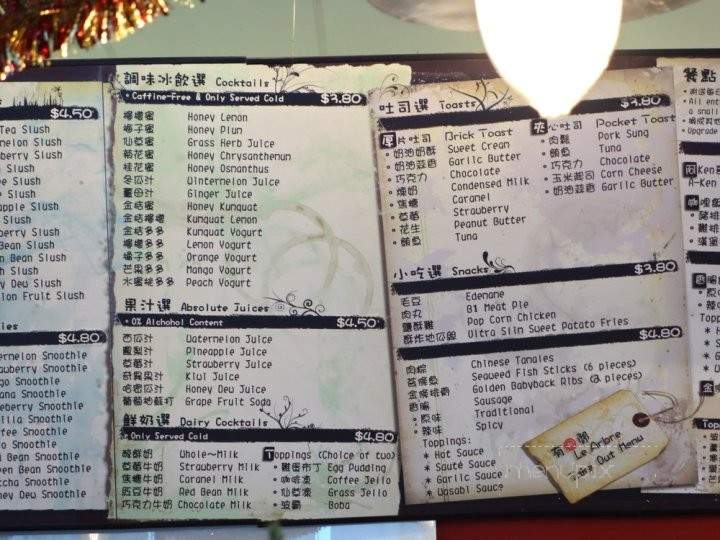 $4.50
Tea Slush
Slush
Slush
Slush
Slush
Slush
Slush
Slush
Bean Slush
Slush
Dew Slush
Fruit Slush
$4.80
Smoothie
Smoothie
Smoothie
Smoothie
Smoothie
Smoothie
Smoothie
Smoothie
Bean Smoothie
Bean Smoothie
Smoothie
Dew Smoothie
調味冰飲選 Cocktails
* Caffine-Free & Only Served Cold $3.80
檸檬蜜 Honey Lemon
梅子蜜 Honey Plum
仙草蜜 Grass Herb Juice
菊花蜜 Honey Chrysanthenum
桂花蜜 Honey Osmanthus
冬瓜汁 Wintermelon Juice
薑母汁 Ginger Juice
金桔蜜 Honey Kumquat
金桔檸檬 Kumquat Lemon
金桔多多 Kumquat Yogurt
檸檬多多 Lemon Yogurt
橘子多多 Orange Yogurt
芒果多多 Mango Yogurt
水蜜桃多多 Peach Yogurt
果汁選 Absolute Juices
* 0% Alchohol Content $4.50
西瓜汁 Watermelon Juice
鳳梨汁 Pineapple Juice
草莓汁 Strawberry Juice
奇異果汁 Kiwi Juice
哈密瓜汁 Honey Dew Juice
葡萄柚蘇打 Grape Fruit Soda
鮮奶選 Dairy Cocktails
* Only Served Cold $4.80
醇鮮奶 Whole-Milk
草莓牛奶 Strawberry Milk
焦糖牛奶 Caramel Milk
紅豆牛奶 Red Bean Milk
巧克力牛奶 Chocolate Milk
Toppings (Choice of two)
* 雞蛋布丁 Egg Pudding
* 咖啡凍 Coffee Jello
* 仙草凍 Grass Jello
* 波霸 Boba
吐司選 Toasts $3.80
厚片吐司 Brick Toast
* 奶油奶酥 Sweet Cream
* 奶油蒜香 Garlic Butter
* 巧克力 Chocolate
* 煉奶 Condensed Milk
* 焦糖 Caramel
* 草莓 Strawberry
* 花生 Peanut Butter
* 鮪魚 Tuna
夾心吐司 Pocket Toast
* 肉鬆 Pork Sung
* 鮪魚 Tuna
* 巧克力 Chocolate
* 玉米起司 Corn Cheese
* 奶油蒜香 Garlic Butter
小吃選 Snacks $3.80
毛豆 Edename
肉丸 B1 Meat Pie
鹽酥雞 Pop Corn Chicken
酥炸地瓜條 Ultra Slim Sweet Patato Fries
$4.80
肉粽 Chinese Tamales
苔條魚 Seaweed Fish Sticks (6 pieces)
金條排骨 Golden Babyback Ribs (3 pieces)
香腸 Sausage
* 原味 Traditional
* 辣味 Spicy
Toppings:
* Hot Sauce
* Sauté Sauce
* Garlic Sauce
* Wasabi Sauce
Le Arbre
Out Menu
menupix
餐點
All ent
a small
A-Ken
Topp
Top